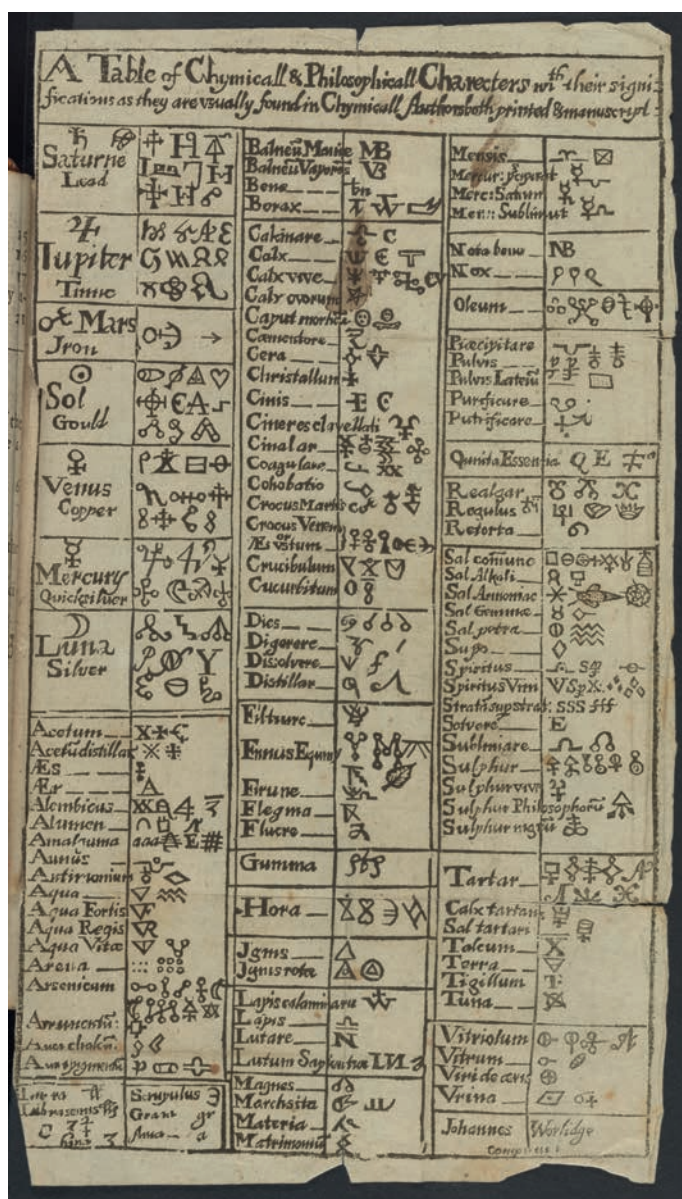 A Table of Chymicall & Philosophicall Charecters wth their signi-
fications as they are usually found in Chymicall Authors both printed & manuscript
Saturne
Lead
Jupiter
Tinne
Mars
Jron
Sol
Gould
Venus
Copper
Mercury
Quicksilver
Luna
Silver
Acetum
Acetū distillat
Æs
Ær
Alembicus
Alumen
Amalgama aaa E
Antimonium
Aqua
Aqua Fortis
Aqua Regis
Aqua Vitæ
Arena
Arsenicum
Auripigmentū
Scrupulus
Gran gr
Ana a
Balneū Mariæ MB
Balneū Vaporis VB
Bene bn
Borax
Calcinare C
Calx
Calx vive
Calx ovorum
Caput mortuū
Cæmentare
Cera
Christallum
Cinis E
Cineres clavellati
Cinabar
Coagulare
Cohobatio
Crocus Martis
Crocus Veneris
Æs ustum
Crucibulum
Cucurbitum
Dies
Digerere
Dissolvere
Distillar
Filtrare
Fimus Equiny
Flegma
Fluere
Gumma
Hora
Jgnis
Jgnis rota
Lapis calaminaris
Lapis
Lutare
Lutum Sapientiæ
Magnes
Marchsita
Materia
Matrimoniū
Mensis
Merc: Saturn
Mer: Sublimat
Nota bene NB
Nox
Oleum
Præcipitare
Pulvis
Pulvis Laterū
Purificare
Putrificare
Quinta Essentia Q E
Realgar
Regulus
Retorta
Sal comune
Sal Alkali
Sal Armoniac
Sal Gemmæ
Sal petra
Spiritus
Spiritus Vini
Solvere E
Sublimare
Sulphur
Sulphur vive
Sulphur Philosophorū
Sulphur nigrū
Tartar
Calx tartari
Sal tartari
Talcum X
Terra
Tigillum
Vitriolum
Vitrum
Viride æris
Vrina
Johannes Worlidge